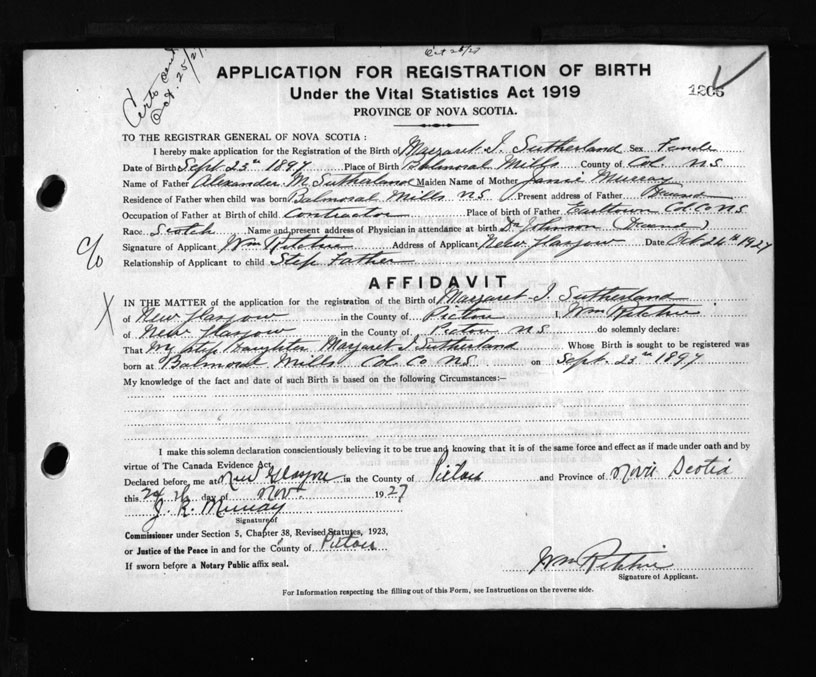 Oct 25/27
APPLICATION FOR REGISTRATION OF BIRTH
Under the Vital Statistics Act 1919
PROVINCE OF NOVA SCOTIA.
1206
TO THE REGISTRAR GENERAL OF NOVA SCOTIA:
I hereby make application for the Registration of the Birth of Margaret I. Sutherland Sex Female
Date of Birth Sept. 23rd 1897 Place of Birth Balmoral Mills County of Col. N S
Name of Father Alexander M Sutherland Maiden Name of Mother Murray
Residence of Father when child was born Balmoral Mills N S Present address of Father
Occupation of Father at Birth of child Contractor Place of birth of Father Earltown Col Co N S
Race Scotch Name and present address of Physician in attendance at birth Dr Johnson
Signature of Applicant Wm Ritchie Address of Applicant New Glasgow Date Oct 24th 1927
Relationship of Applicant to child Step Father
c/o
AFFIDAVIT
X
IN THE MATTER of the application for the registration of the Birth of Margaret I. Sutherland
of New Glasgow in the County of Pictou I, Wm Ritchie
of New Glasgow in the County of Pictou N S do solemnly declare:
That my step Daughter Margaret I Sutherland Whose Birth is sought to be registered was
born at Balmoral Mills Col. Co N S on Sept. 23rd 1897
My knowledge of the fact and date of such Birth is based on the following Circumstances:—
I make this solemn declaration conscientiously believing it to be true and knowing that it is of the same force and effect as if made under oath and by
virtue of The Canada Evidence Act.
Declared before me at New Glasgow in the County of Pictou and Province of Nova Scotia
this day of Nov 1927
J. R. Murray
Signature of
Commissioner under Section 5, Chapter 38, Revised Statutes, 1923,
or Justice of the Peace in and for the County of Pictou
If sworn before a Notary Public affix seal.
Wm Ritchie
Signature of Applicant.
For Information respecting the filling out of this Form, see Instructions on the reverse side.